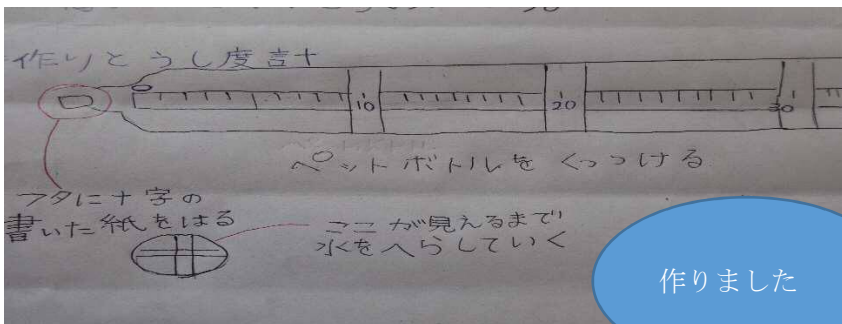 作りとうし度計
0
10
20
30
ペットボトルをくっつける
フタに十字の
書いた紙をはる
ここが見えるまで
水をへらしていく
作りました